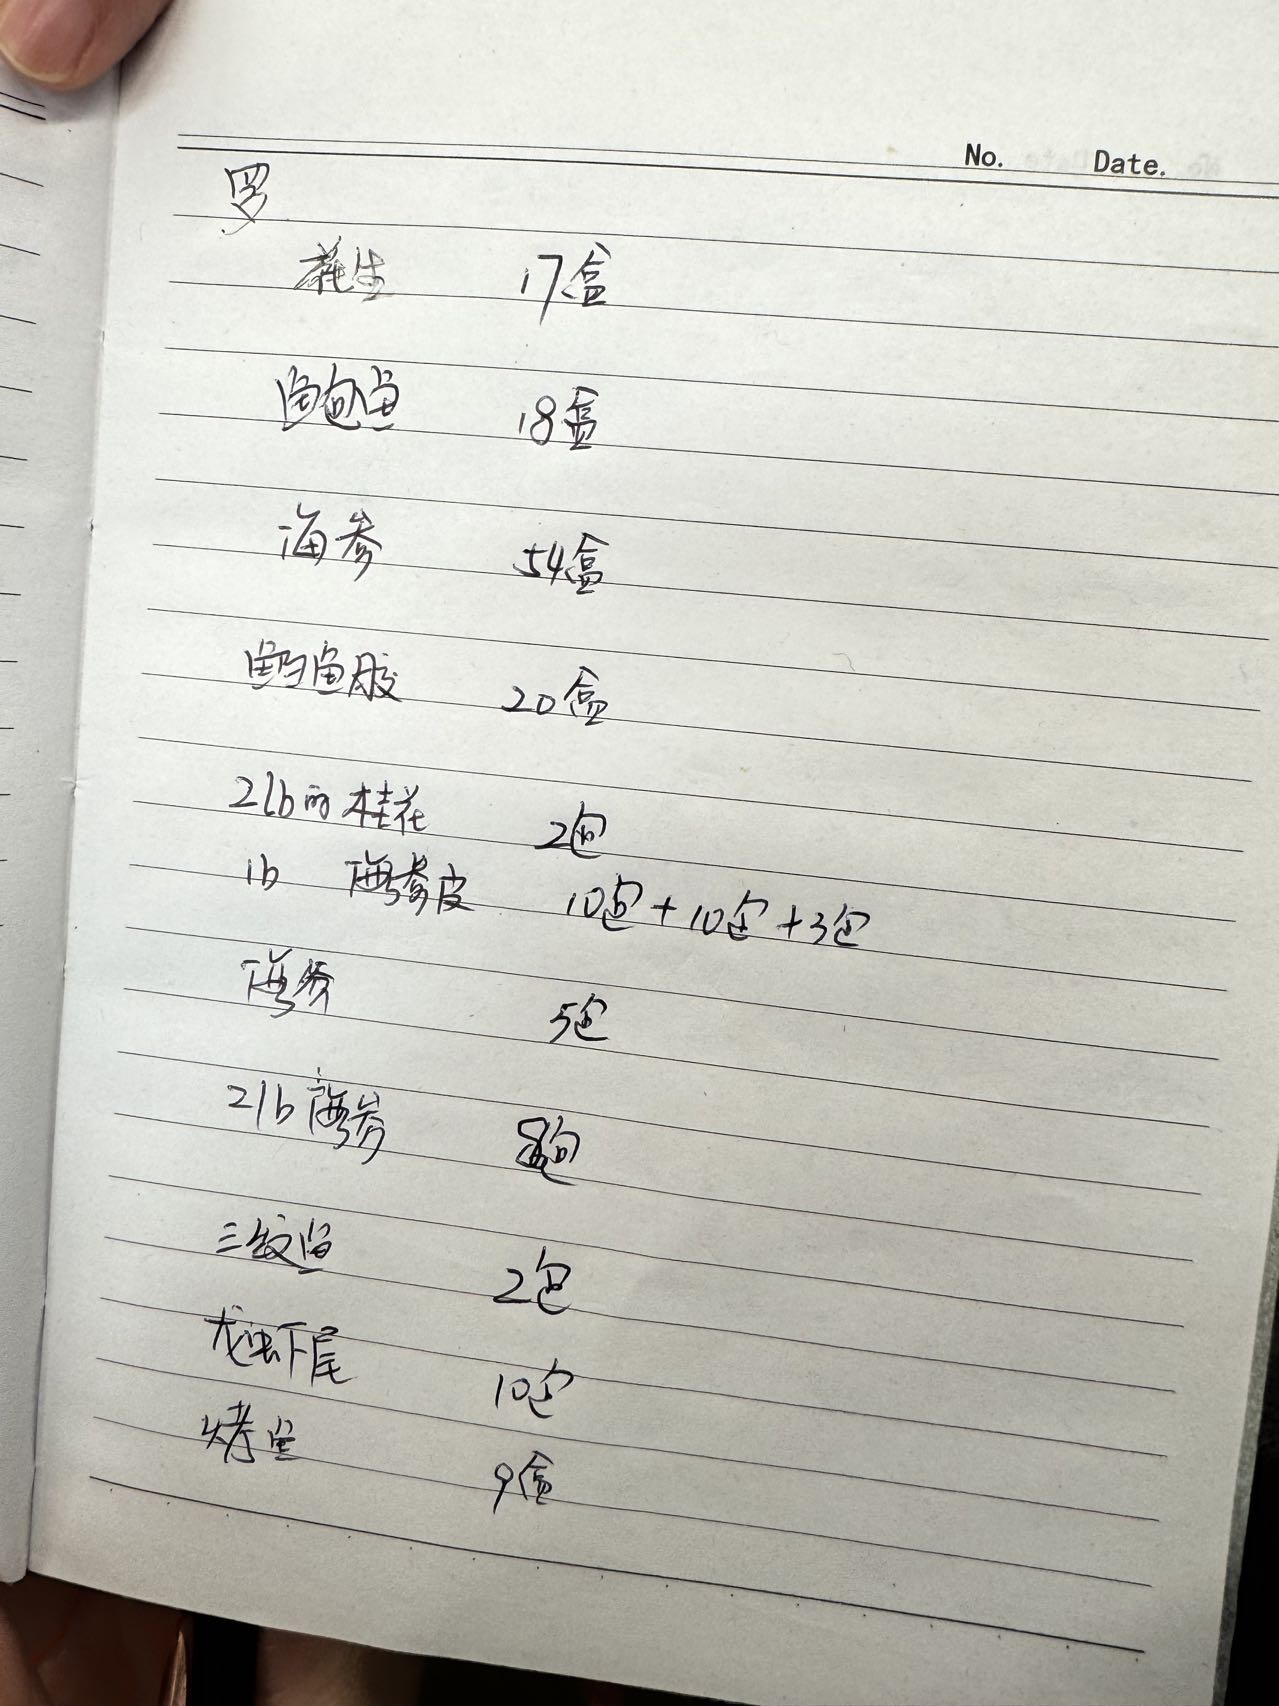 No. Date.
罗
花生 17盒
鲍鱼 18盒
海参 54盒
鲍鱼胶 20盒
2lb的桂花 2包
1b 海参皮 10包+10包+3包
海参 5包
2lb海参 包
三纹鱼 2包
龙虾尾 10包
烤鱼 9盒